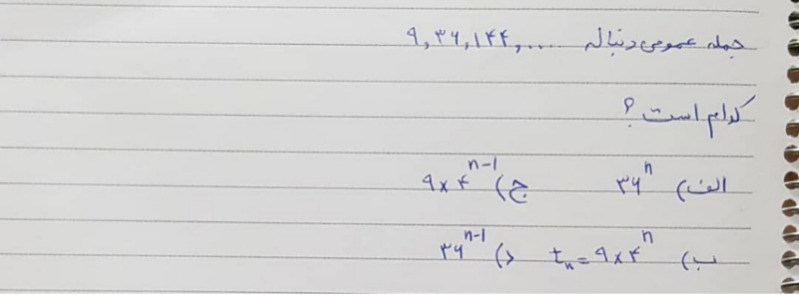 جمله عمومی دنباله ۹, ۳۶, ۱۴۴, ....
کدام است ؟
الف) ۳۶^n ج) ۹×۴^{n-۱}
ب) t_n = ۹×۴^n د) ۳۶^{n-۱}